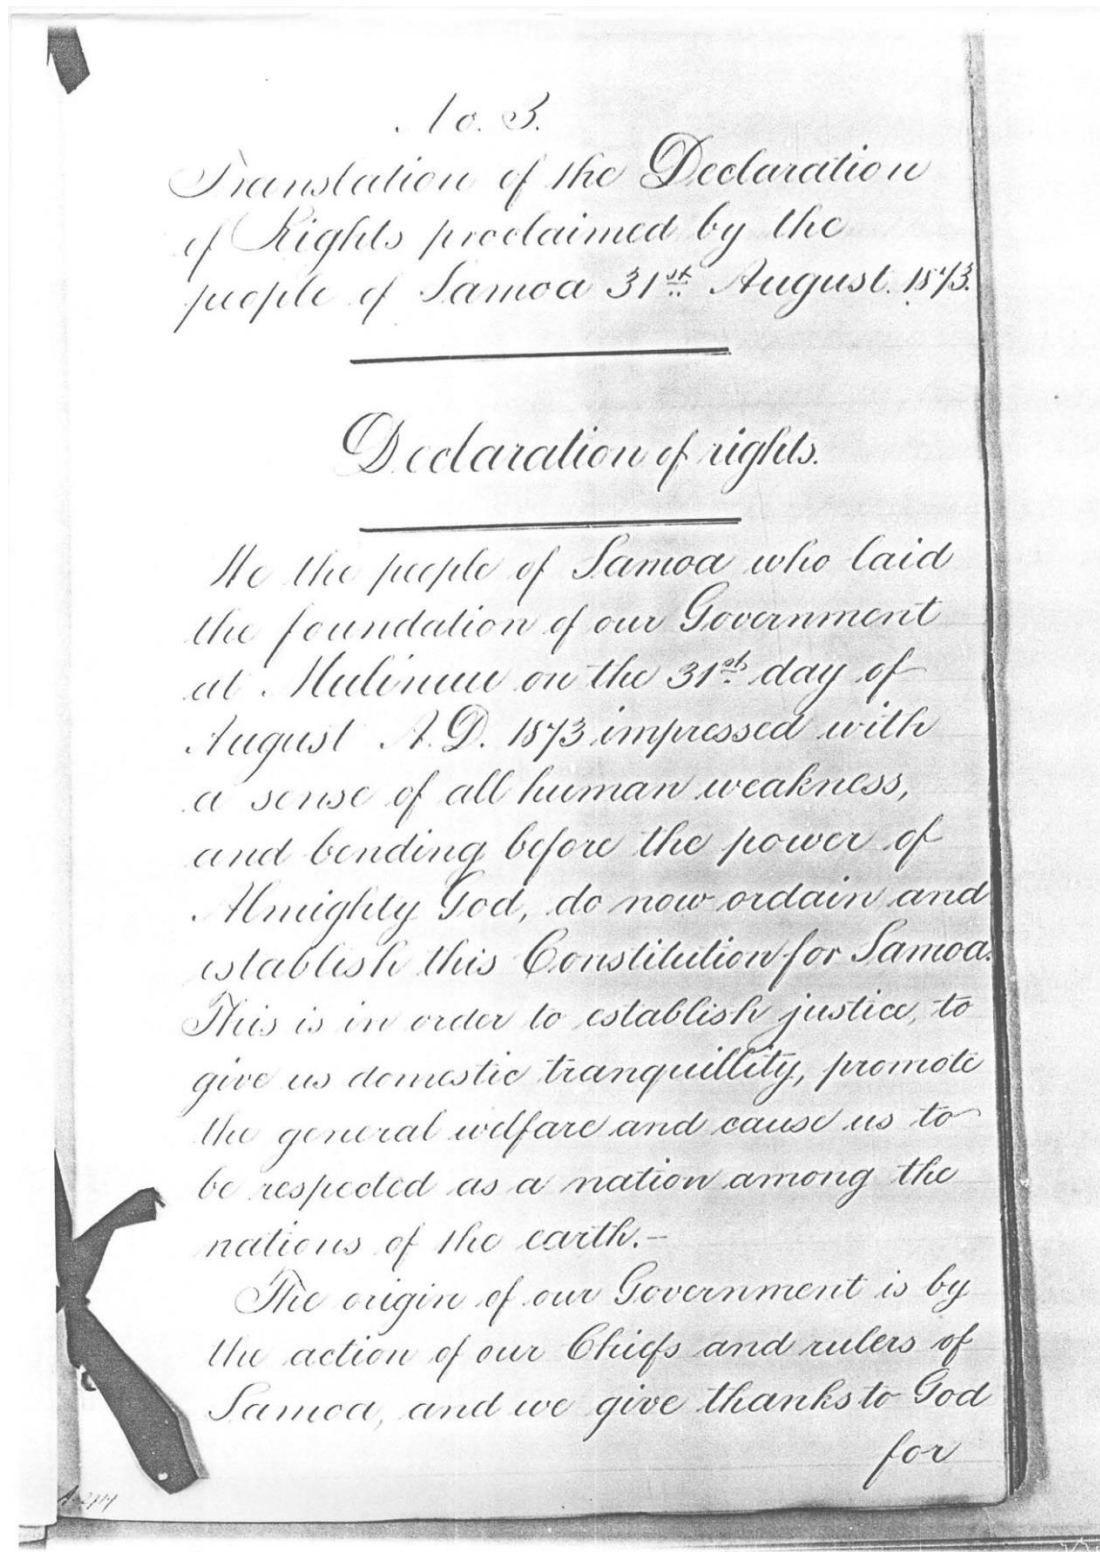 No. 3.
Translation of the Declaration
of Rights proclaimed by the
people of Samoa 31st August. 1873.
Declaration of rights.
We the people of Samoa who laid
the foundation of our Government
at Mulinuu on the 31st day of
August A.D. 1873 impressed with
a sense of all human weakness,
and bending before the power of
Almighty God, do now ordain and
establish this Constitution for Samoa.
This is in order to establish justice, to
give us domestic tranquillity, promote
the general welfare and cause us to
be respected as a nation among the
nations of the earth.-
The origin of our Government is by
the action of our Chiefs and rulers of
Samoa, and we give thanks to God
for